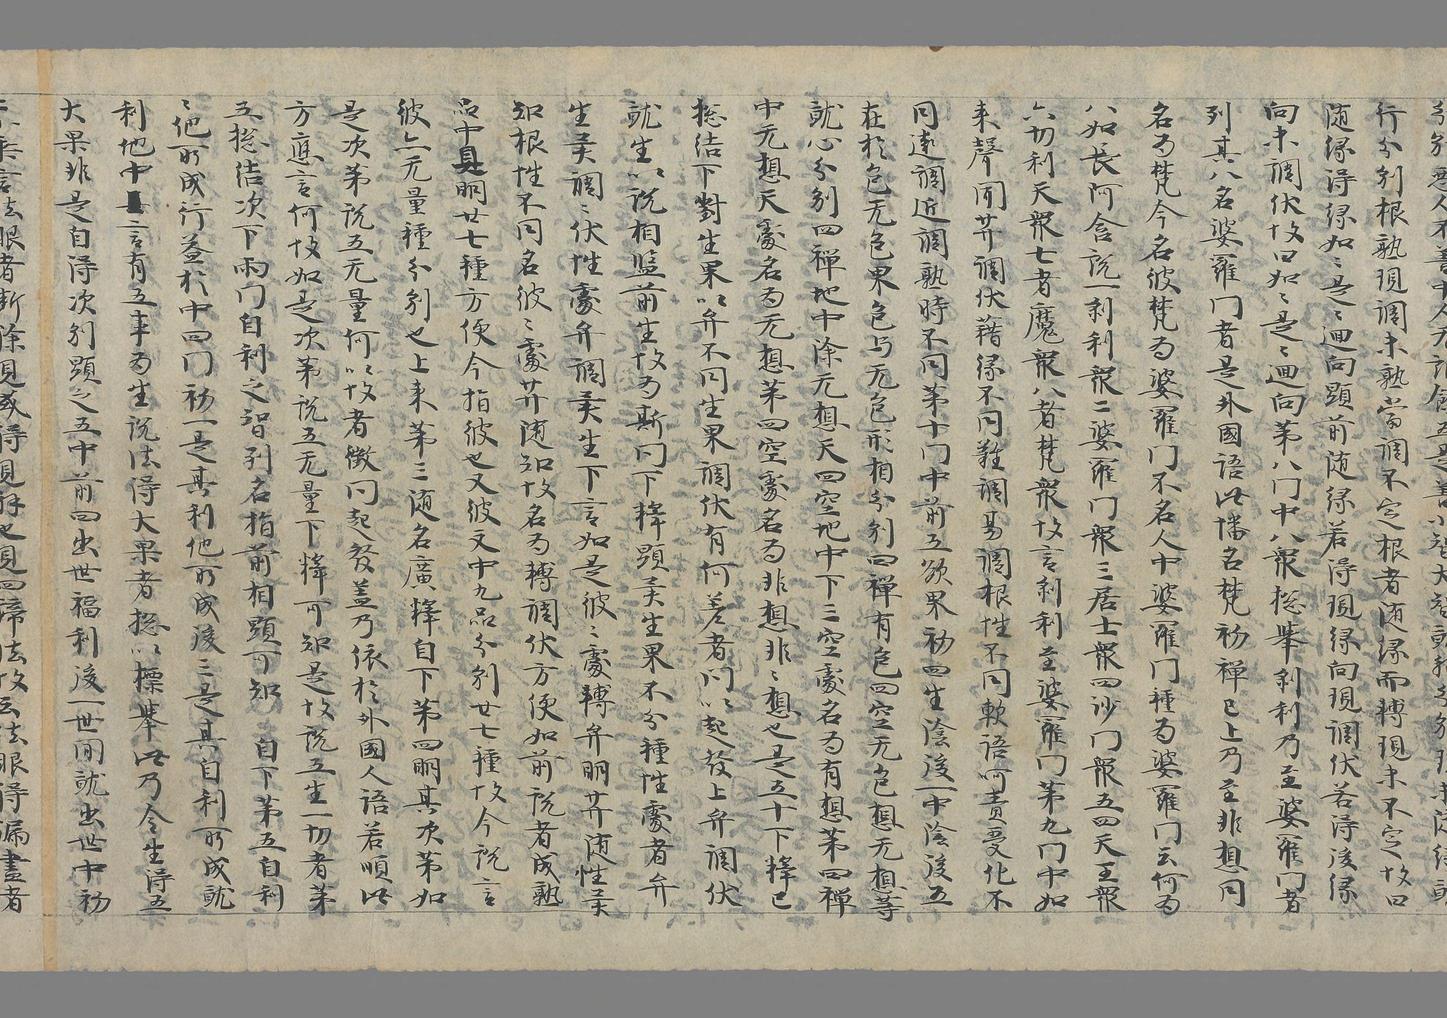 行分別根熟現調未熟當調不定根者随緣而轉現未不定故曰
随緣得緣如〻是〻迴向顯前随緣若得現緣向現調伏若得後緣
向未調伏故曰如〻是〻迴向第八門中八報揔舉刹利乃至婆羅門者
列其八名婆羅門者是外國語此憣名梵初禪已上乃至非想同
名為梵今名彼梵為婆羅門不名人中婆羅門種為婆羅門云何為
八如長阿含說一刹利報二婆羅門報三居士報四沙門報五四天王報
六忉利天報七者魔報八者梵報故言刹利至婆羅門第九門中如
来聲聞菩調伏藉緣不同難調易調根性不同軟語呵責受化不
同遠調近調熟時不同第十門中前五欲界初四生陰後一中陰後五
在於色无色界色与无色形相分別四禪有色四空无色想无想等
就心分別四禪地中除无想天四空地中下三空處名為有想第四禪
中无想天處名為无想第四空處名為非想非〻想也是五十下釋已
揔結下對生果以弁不同生果調伏有何差者問以起發上弁調伏
就生以說相監前生故為斯問下釋顯異生果不分種性處者弁
生異調〻伏性處弁調異生下言如是彼〻處轉弁明菩随性異
知根性不同名彼〻處菩随知故名為轉調伏方便如前說者成熟
品中具明廿七種方便今指彼也又彼文中九品分別廿七種故今說言
彼亦无量種分別也上来第三随名廣釋自下第四明其次第如
是次第說五无量何以故者徴問起發盖乃依於外國人語若順此
方應言何故如是次第說五无量下釋可知是故說五生一切者第
五揔結次下兩門自利之智列名指前相顯可知 自下第五自利
〻他所成行益於中四門初一是其利他所成後三是其自利所成就
利他中言有五事為生說法得大果者揔以標舉此乃令生得五
大果非是自得次列顯之五中前四出世福利後一世間就出世中初